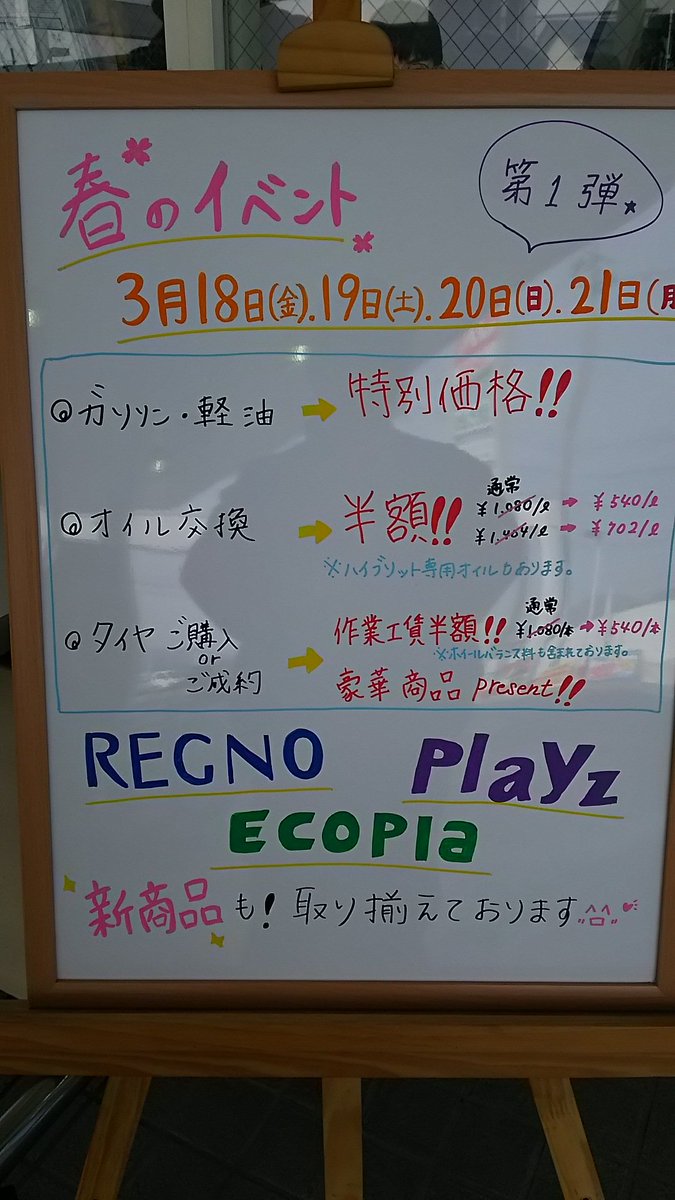 春のイベント
第1弾
3月18日(金).19日(土).20日(日).21日(月
ガソリン・軽油 → 特別価格!!
オイル交換 → 半額!!
通常
¥1.080/ℓ → ¥540/ℓ
¥1.404/ℓ → ¥702/ℓ
※ハイブリット専用オイルもあります。
タイヤ ご購入
or
ご成約
→ 作業工賃半額!!
通常
¥1.080/本 → ¥540/本
※ホイールバランス料も含まれております。
豪華商品 present!!
REGNO
Playz
ECOPIa
新商品も!取り揃えております